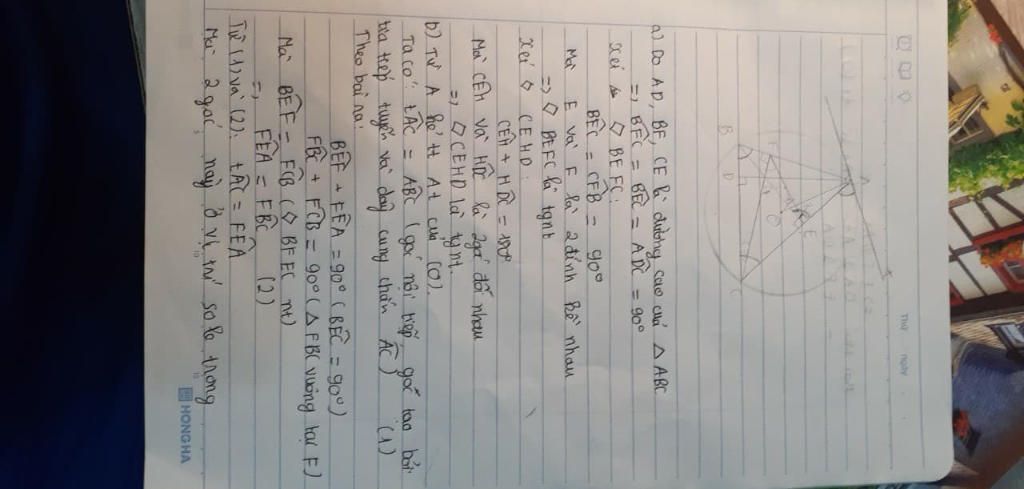 Thứ ngày
A
x
F
E
H
O
B
D
C
a) Do AD, BF, CE là đường cao của △ ABC
=> BFC = BEC = ADC = 90°
Xét ◇ BEFC:
BEC = CFB = 90°
Mà E và F là 2 đỉnh kề nhau
=> ◇ BEFC là tgnt
Xét ◇ CEHD:
CEH + HDC = 180°
Mà CEH và HDC là 2góc đối nhau
=> ◇ CEHD là tg nt.
b) Từ A kẻ tt At của (O).
Ta có: tAC = ABC (góc nội tiếp, góc tạo bởi
tia tiếp tuyến và dây cung chắn AC) (1)
Theo bài ra:
BEF + FEA = 90° (BEC = 90°)
FBC + FCB = 90° (△ FBC vuông tại F)
Mà BEF = FCB (◇ BFEC nt)
=> FEA = FBC (2)
Từ (1) và (2): tAC = FEA
Mà 2 góc này ở vị trí so le trong
HONG HA